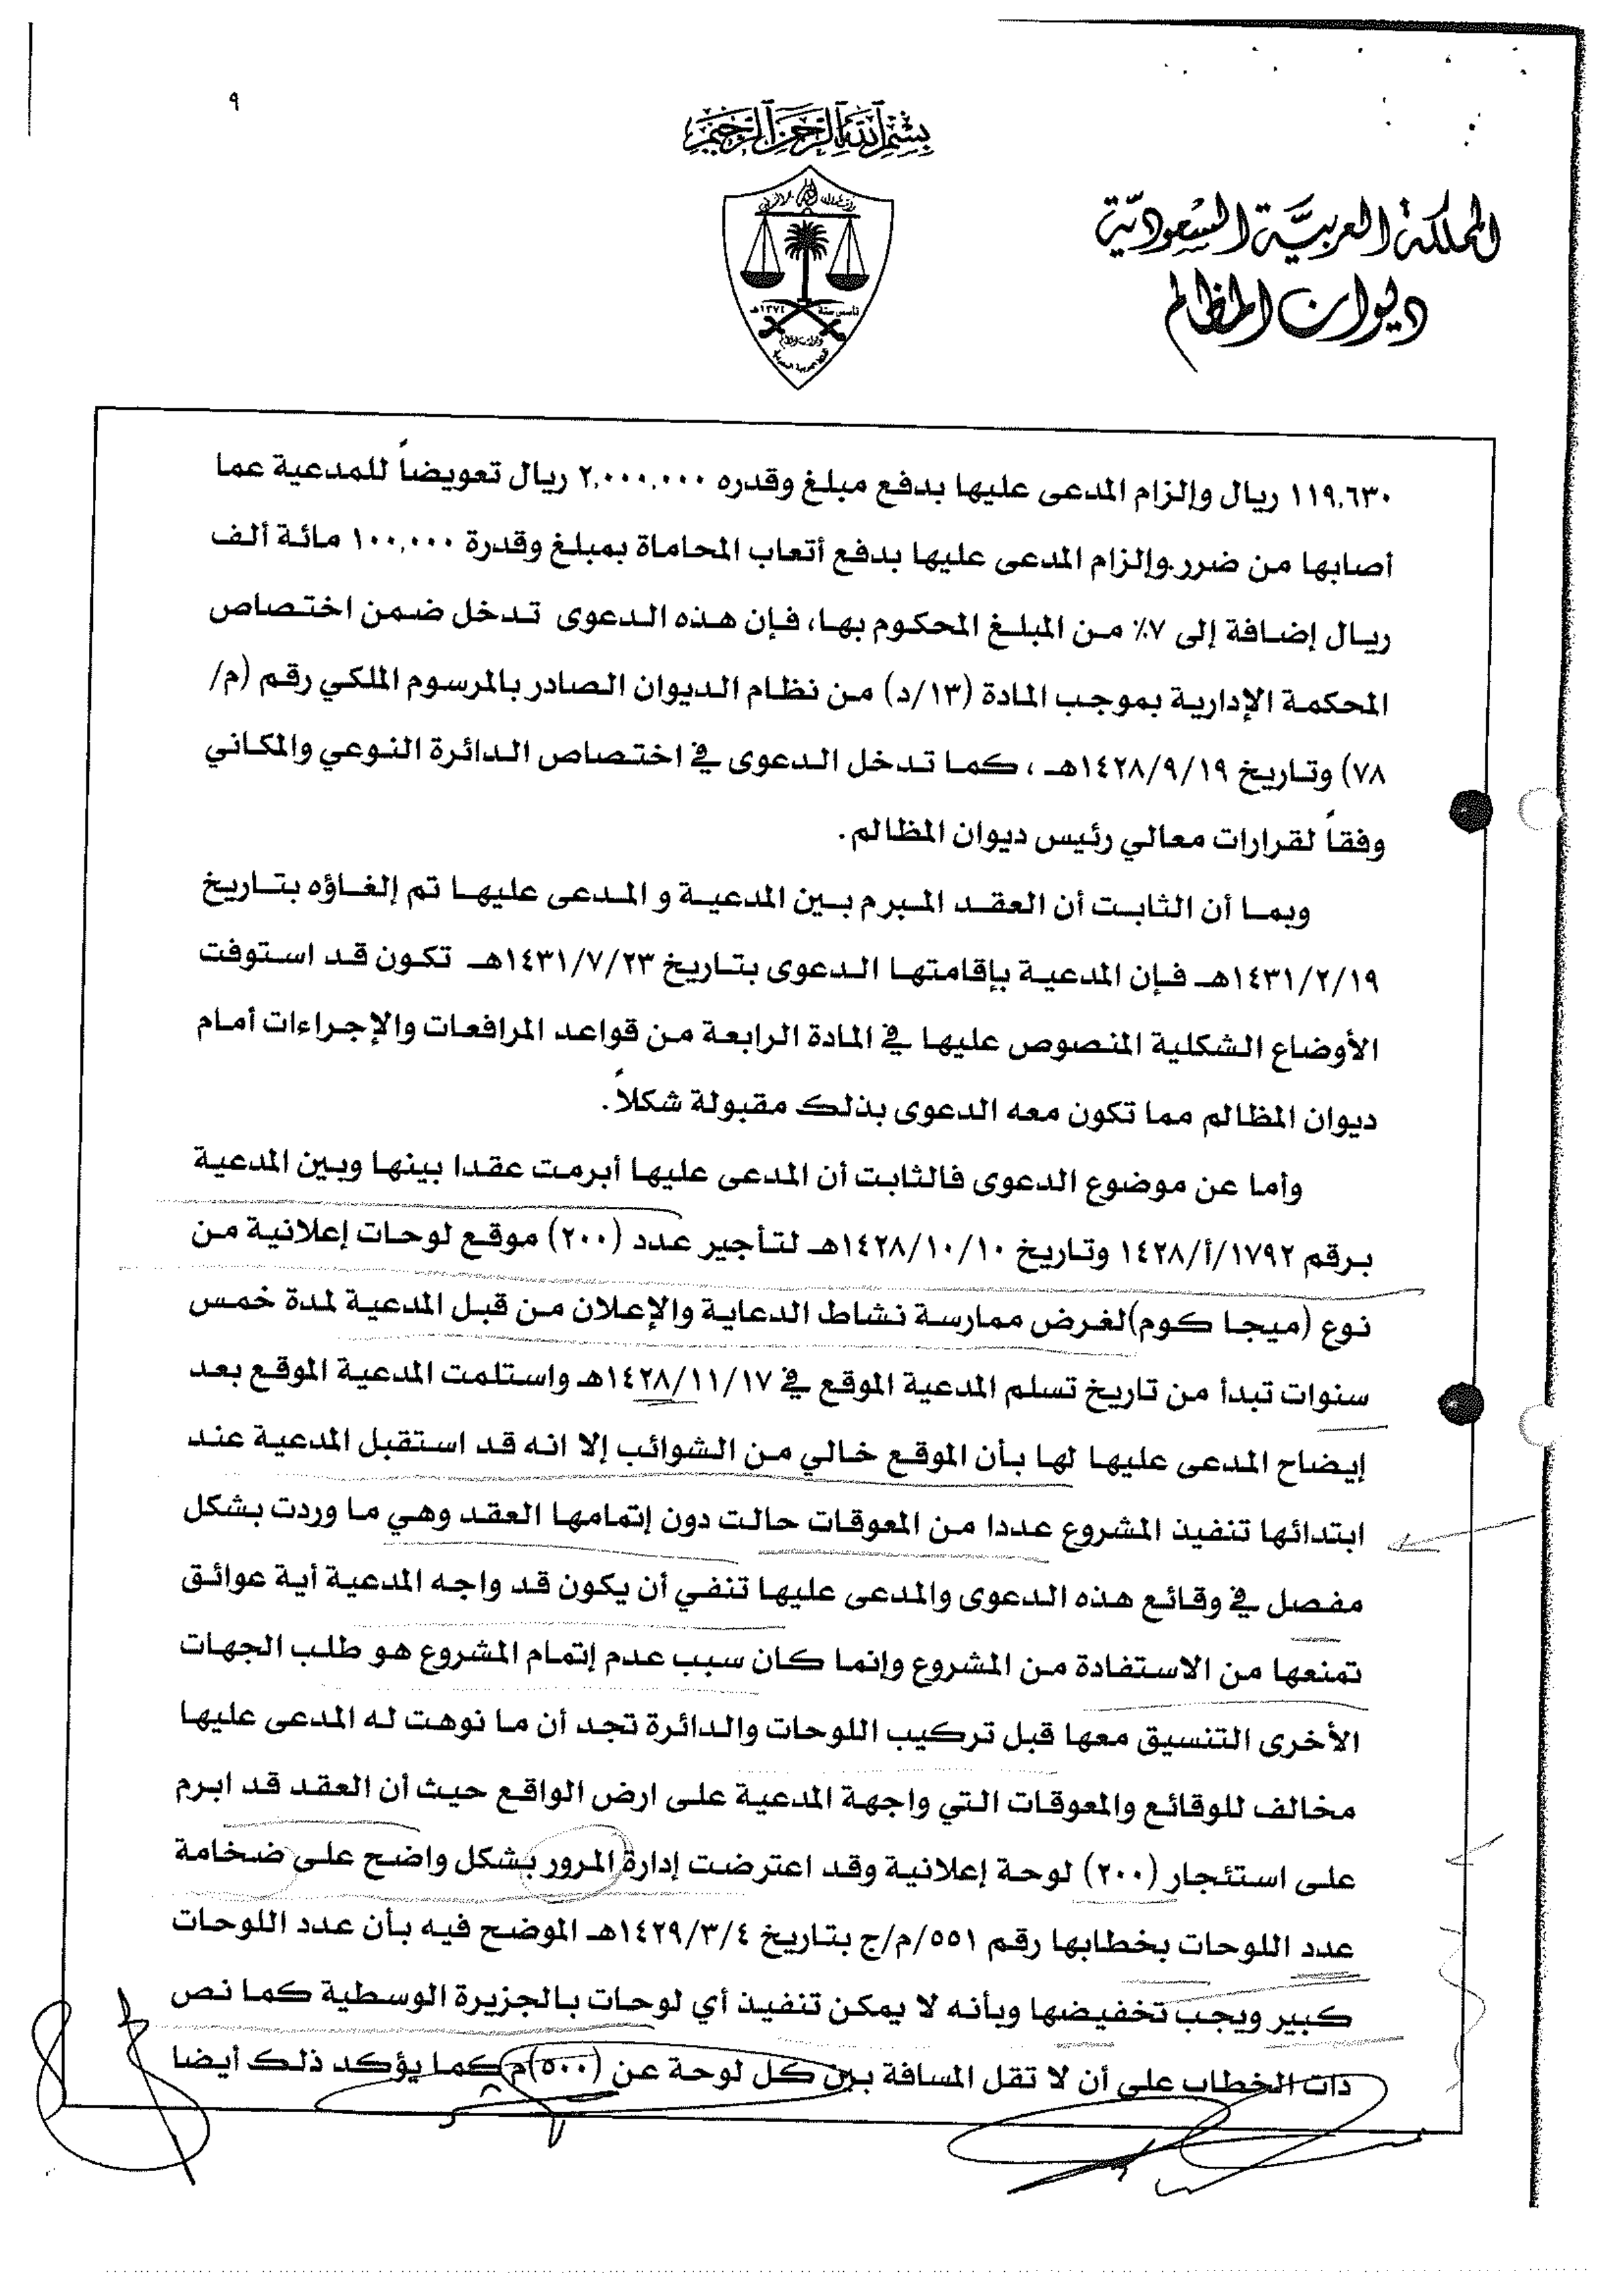 ٩
بسم الله الرحمن الرحيم
المملكة العربية السعودية
ديوان المظالم
تأسس سنة ١٣٧٤هـ
١١٩,٦٣٠ ريال وإلزام المدعى عليها بدفع مبلغ وقدره ٢,٠٠٠,٠٠٠ ريال تعويضاً للمدعية عما
أصابها من ضرر وإلزام المدعى عليها بدفع أتعاب المحاماة بمبلغ وقدرة ١٠٠,٠٠٠ مائة ألف
ريال إضافة إلى ٧٪ من المبلغ المحكوم بها، فإن هذه الدعوى تدخل ضمن اختصاص
المحكمة الإدارية بموجب المادة (١٣/د) من نظام الديوان الصادر بالمرسوم الملكي رقم (م/
٧٨) وتاريخ ١٤٢٨/٩/١٩هـ ، كما تدخل الدعوى في اختصاص الدائرة النوعي والمكاني
وفقاً لقرارات معالي رئيس ديوان المظالم.
وبما أن الثابت أن العقد المبرم بين المدعية و المدعى عليها تم إلغاؤه بتاريخ
١٤٣١/٢/١٩هـ فإن المدعية بإقامتها الدعوى بتاريخ ١٤٣١/٧/٢٣هـ تكون قد استوفت
الأوضاع الشكلية المنصوص عليها في المادة الرابعة من قواعد المرافعات والإجراءات أمام
ديوان المظالم مما تكون معه الدعوى بذلك مقبولة شكلاً.
وأما عن موضوع الدعوى فالثابت أن المدعى عليها أبرمت عقدا بينها وبين المدعية
برقم ١٧٩٢/أ/١٤٢٨ وتاريخ ١٤٢٨/١٠/١٠هـ لتأجير عدد (٢٠٠) موقع لوحات إعلانية من
نوع (ميجا كوم)لغرض ممارسة نشاط الدعاية والإعلان من قبل المدعية لمدة خمس
سنوات تبدأ من تاريخ تسلم المدعية الموقع في ١٤٢٨/١١/١٧هـ واستلمت المدعية الموقع بعد
إيضاح المدعى عليها لها بأن الموقع خالي من الشوائب إلا انه قد استقبل المدعية عند
ابتدائها تنفيذ المشروع عددا من المعوقات حالت دون إتمامها العقد وهي ما وردت بشكل
مفصل في وقائع هذه الدعوى والمدعى عليها تنفي أن يكون قد واجه المدعية أية عوائق
تمنعها من الاستفادة من المشروع وإنما كان سبب عدم إتمام المشروع هو طلب الجهات
الأخرى التنسيق معها قبل تركيب اللوحات والدائرة تجد أن ما نوهت له المدعى عليها
مخالف للوقائع والمعوقات التي واجهة المدعية على ارض الواقع حيث أن العقد قد ابرم
على استئجار (٢٠٠) لوحة إعلانية وقد اعترضت إدارة المرور بشكل واضح على ضخامة
عدد اللوحات بخطابها رقم ٥٥١/م/ج بتاريخ ١٤٢٩/٣/٤هـ الموضح فيه بأن عدد اللوحات
كبير ويجب تخفيضها وبأنه لا يمكن تنفيذ أي لوحات بالجزيرة الوسطية كما نص
ذات الخطاب على أن لا تقل المسافة بين كل لوحة عن (٥٠٠)م كما يؤكد ذلك أيضا